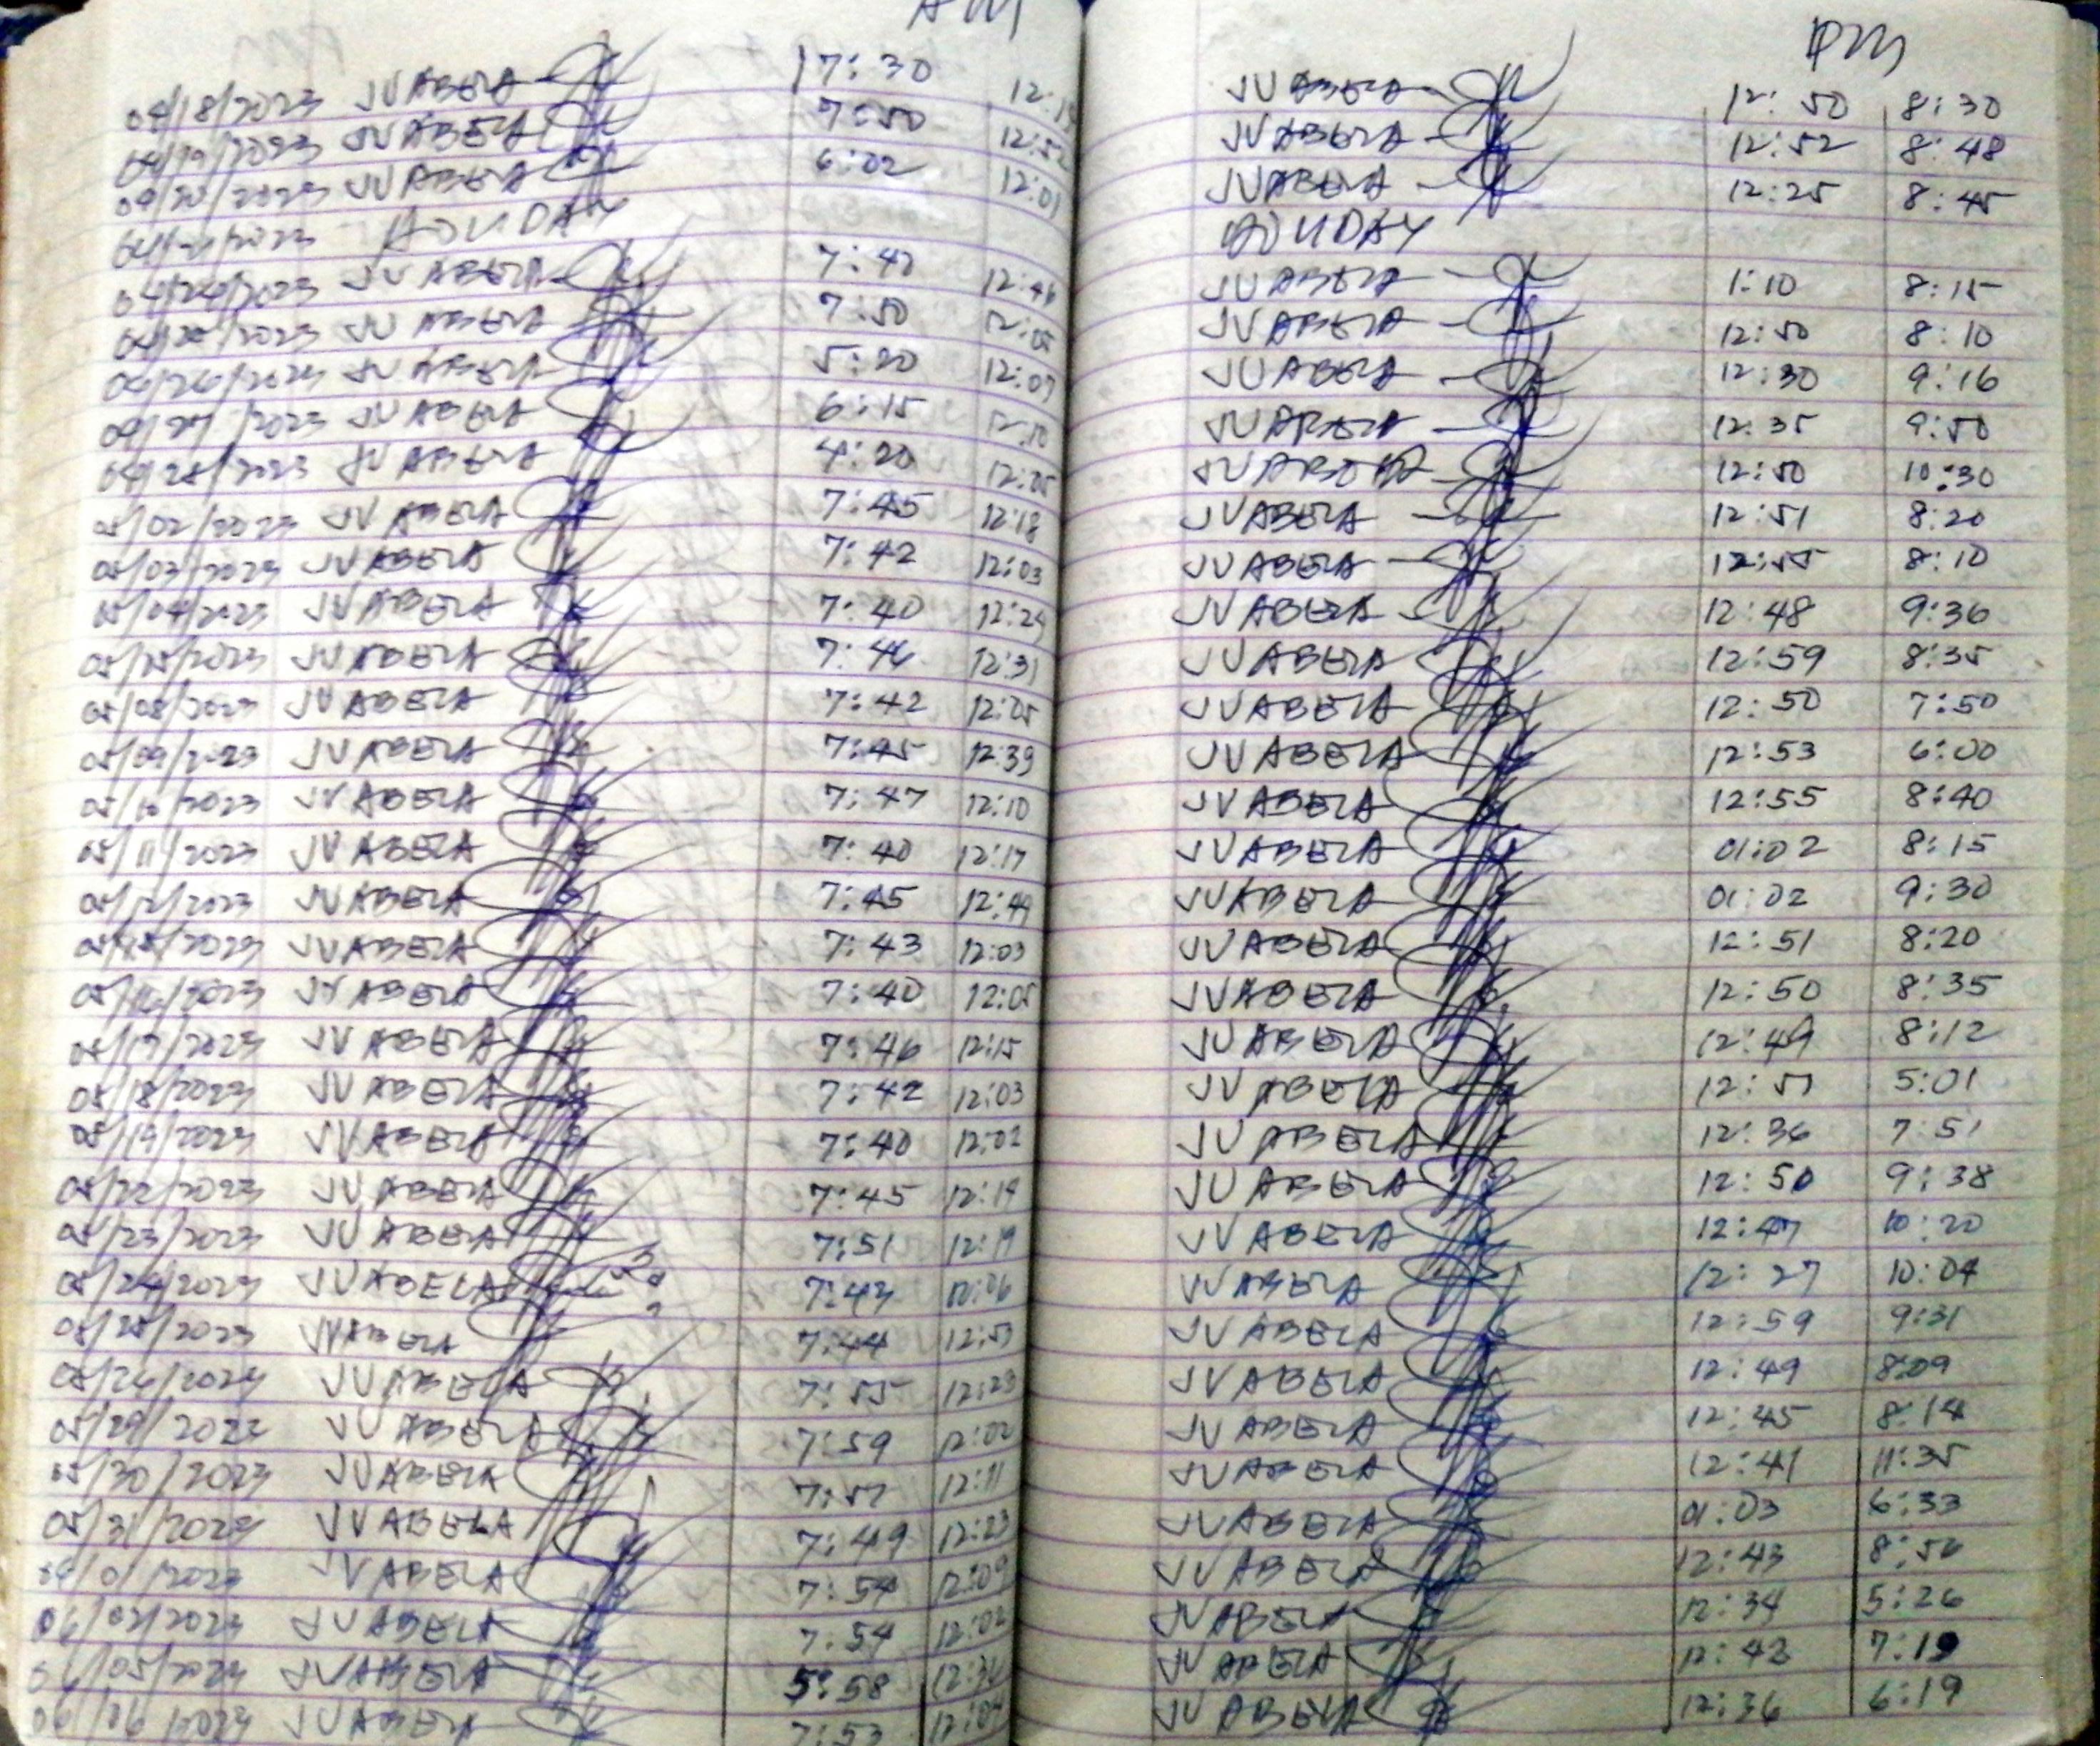 AM
04/18/2023 JV ABELA 7:30
04/19/2023 JV ABELA 7:50 12:52
04/20/2023 JV ABELA 6:02 12:01
04/21/2023 HOLIDAY
04/24/2023 JV ABELA 7:42 12:46
JV ABELA 7:50 12:05
04/26/2023 JV ABELA 5:20 12:07
04/27/2023 JV ABELA 6:15 12:10
04/28/2023 JV ABELA 4:20 12:05
05/02/2023 JV ABELA 7:45 12:18
05/03/2023 JV ABELA 7:42 12:03
05/04/2023 JV ABELA 7:40 12:24
05/05/2023 JV ABELA 7:46 12:31
05/08/2023 JV ABELA 7:42 12:05
05/09/2023 JV ABELA 7:45 12:39
05/10/2023 JV ABELA 7:47 12:10
05/11/2023 JV ABELA 7:40 12:17
05/12/2023 JV ABELA 7:45 12:49
05/15/2023 JV ABELA 7:43 12:03
05/16/2023 JV ABELA 7:40 12:05
05/17/2023 JV ABELA 7:46 12:15
05/18/2023 JV ABELA 7:42 12:03
05/19/2023 JV ABELA 7:40 12:02
05/22/2023 JV ABELA 7:45 12:19
05/23/2023 JV ABELA 7:51 12:19
05/24/2023 JV ABELA 7:43 12:06
05/25/2023 JV ABELA 7:44 12:53
05/26/2023 JV ABELA 7:55 12:23
JV ABELA 7:59 12:02
05/30/2023 JV ABELA 7:57 12:11
05/31/2023 JV ABELA 7:49 12:23
JV ABELA 7:54 12:09
06/02/2023 JV ABELA 7:54 12:02
06/05/2023 JV ABELA 5:58
06/06/2023 JV ABELA 7:53 12:04
PM
JV ABELA 12:50 8:30
JV ABELA 12:52 8:48
JV ABELA 12:25 8:45
HOLIDAY
JV ABELA 1:10 8:15
JV ABELA 12:50 8:10
JV ABELA 12:30 9:16
JV ABELA 12:35 9:50
JV ABELA 12:50 10:30
JV ABELA 12:51 8:20
JV ABELA 12:55 8:10
JV ABELA 12:48 9:36
JV ABELA 12:59 8:35
JV ABELA 12:50 7:50
JV ABELA 12:53 6:00
JV ABELA 12:55 8:40
JV ABELA 01:02 8:15
JV ABELA 01:02 9:30
JV ABELA 12:51 8:20
JV ABELA 12:50 8:35
JV ABELA 12:49 8:12
JV ABELA 12:51 5:01
JV ABELA 12:36 7:51
JV ABELA 12:50 9:38
JV ABELA 12:47 10:20
JV ABELA 12:27 10:04
JV ABELA 12:59 9:31
JV ABELA 12:49 8:09
JV ABELA 12:45 8:14
JV ABELA 12:41 11:35
JV ABELA 01:03 6:33
JV ABELA 12:43 8:56
JV ABELA 12:34 5:26
JV ABELA 12:42 7:19
JV ABELA 12:36 6:19